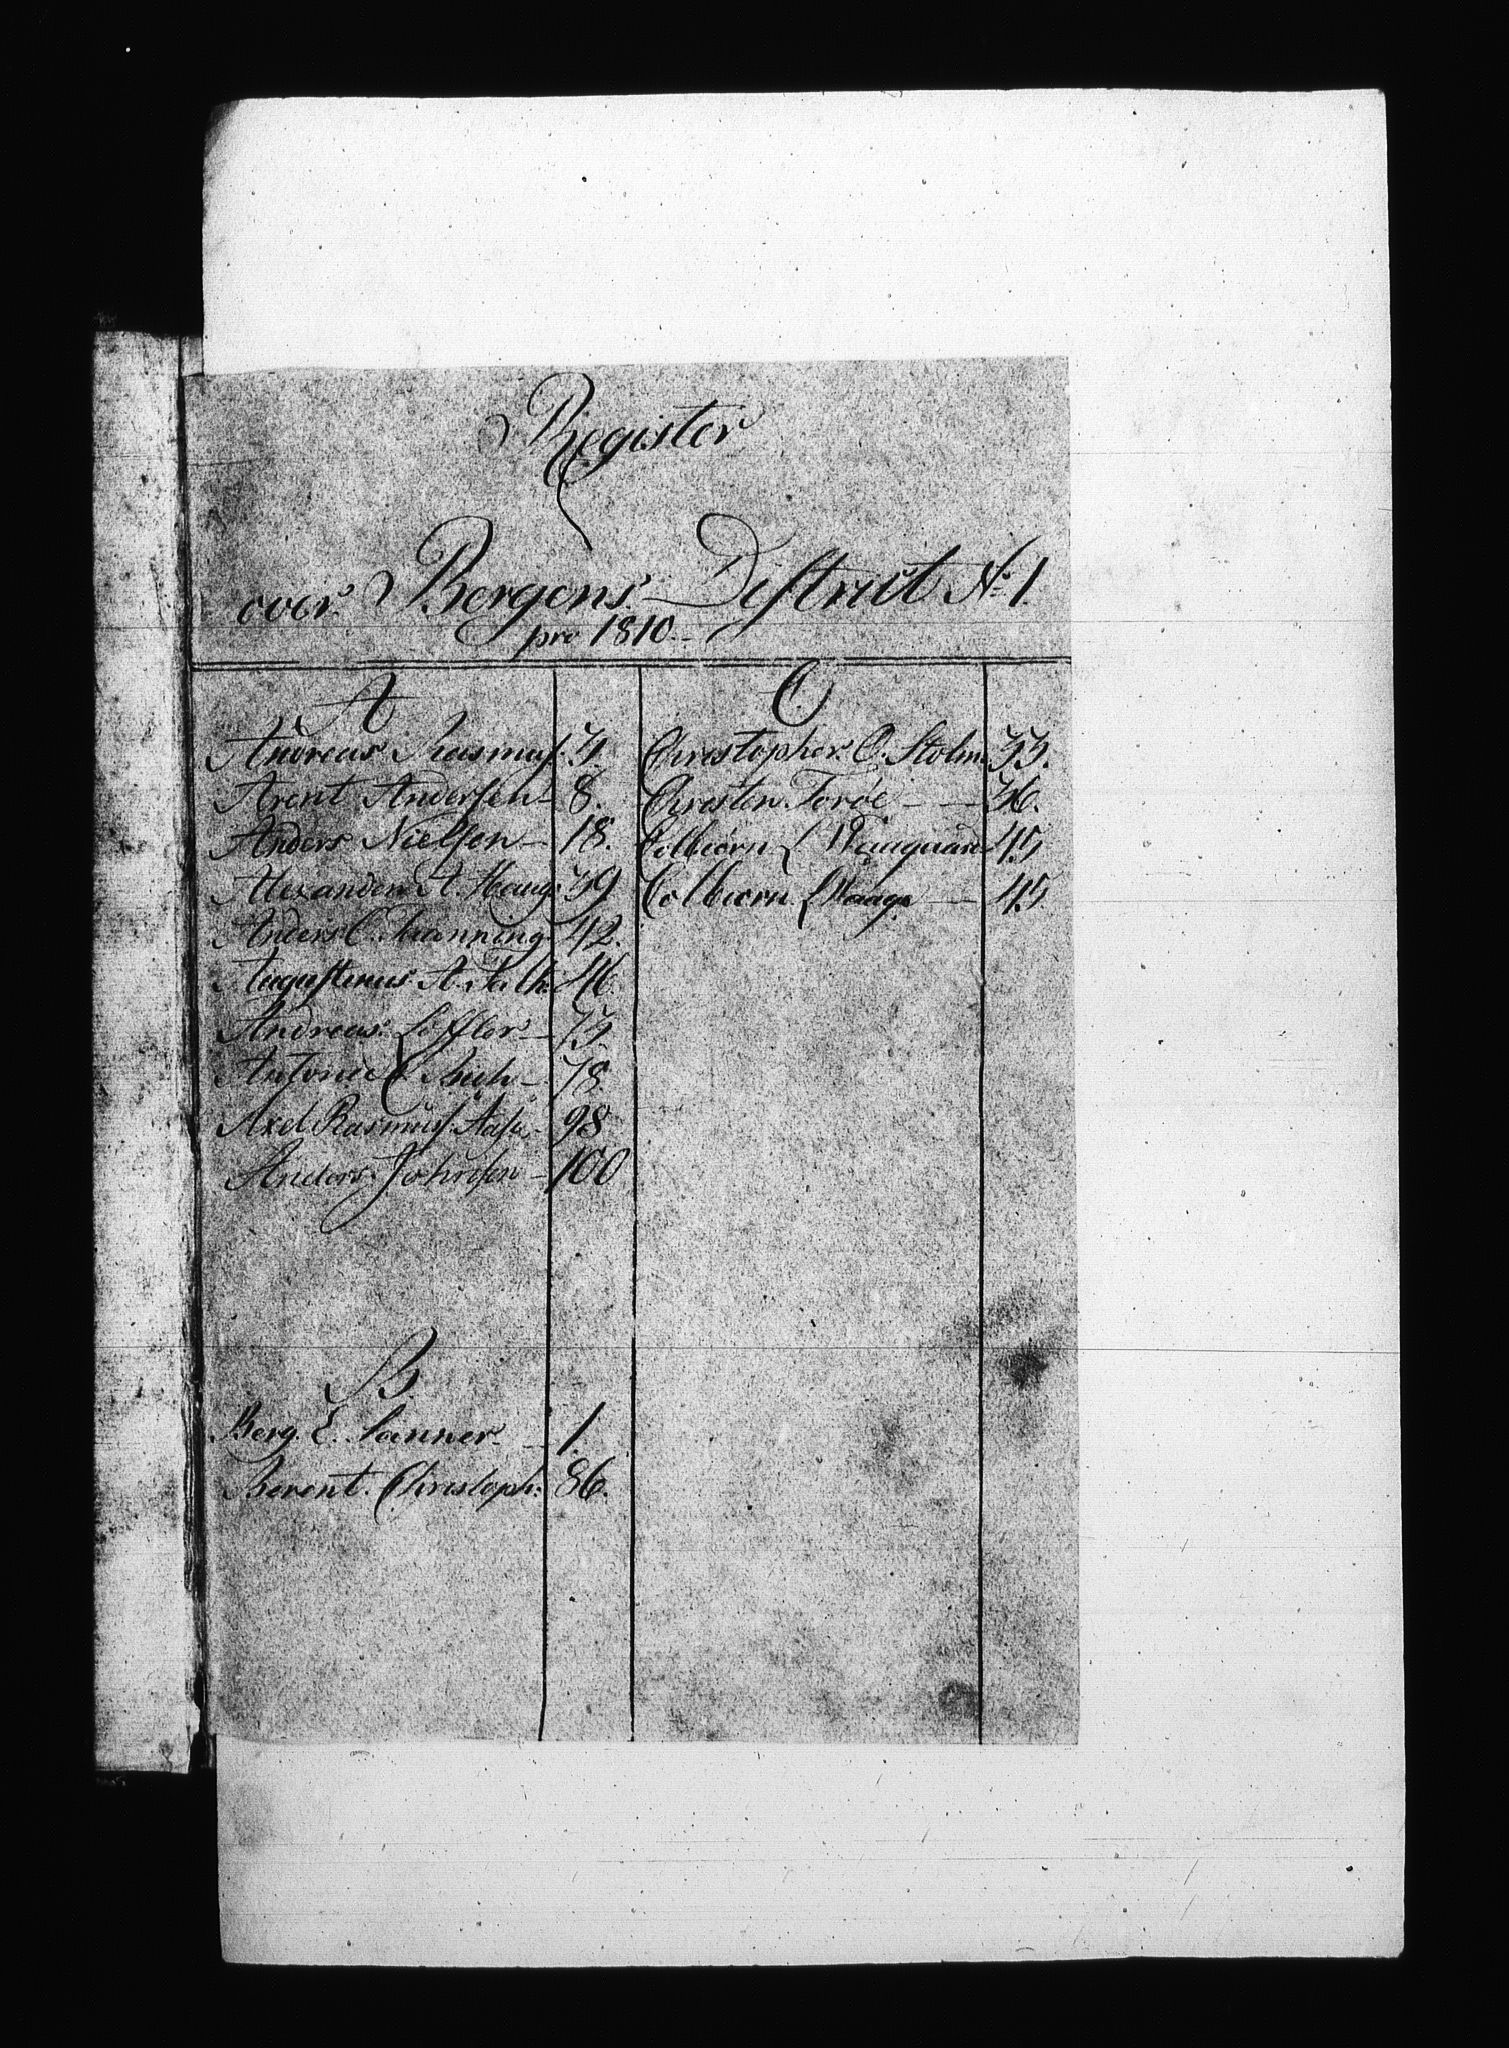 Register
over Bergens District No 1.
pro 1810.
A
Andreas Rasmusf. 3.
Arent Andersen 8.
Anders Nielsen 18.
Alexander A. Haug 39.
Anders C. Tranning 42.
Augustinus A. Falk 46.
Andreas Löffler 75
Antonie Buch 78.
Axel Rasmus Aase 98
Anders Johnsen 100
B.
Berg. E. Sanner 1.
Berent Christoph: 86.
C.
Christopher C. Stolm 33.
Christen Toröe 36.
Colbiørn 45
Colbiørn Haage 45